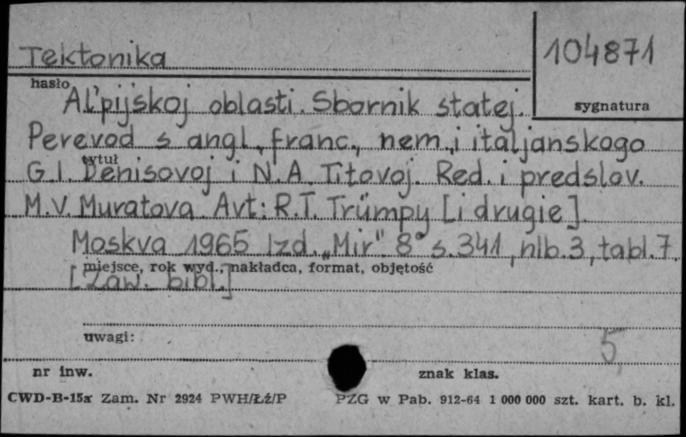 Tektonika
104871
hasło
Al'pijskoj oblasti. Sbornik statej.
sygnatura
Perevod s angl., franc., nem. i italjanskogo
tytuł
G.I. Denisovoj i N.A. Titovoj. Red. i predslov.
M.V. Muratova. Avt: R.T. Trümpy [i drugie].
Moskva 1965 Izd. „Mir" 8° s. 341, nlb. 3, tabl. 7.
miejsce, rok wyd., nakładca, format, objętość
[Zaw. bibl.]
uwagi:
5
nr inw.
znak klas.
CWD-B-15a Zam. Nr 2924 PWH/Łź/P
PZG w Pab. 912-64 1 000 000 szt. kart. b. kl.